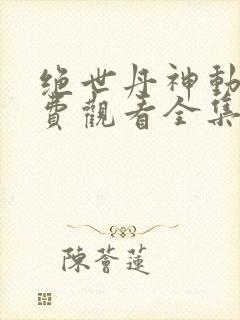 绝世丹神動
費觀看全集
陳薈蓮